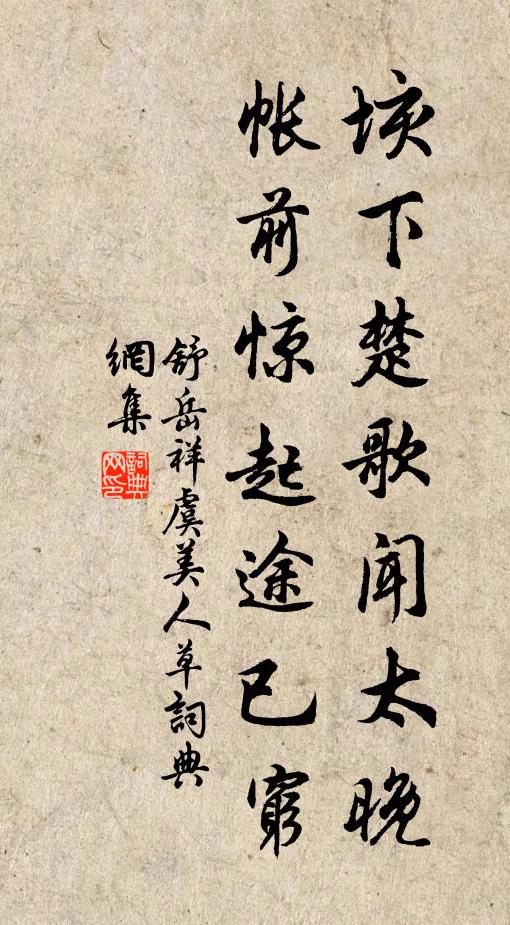 垓下楚歌闻太晚
帐前惊起途已穷
舒岳祥虞美人草詞典
網集
詞典
网印